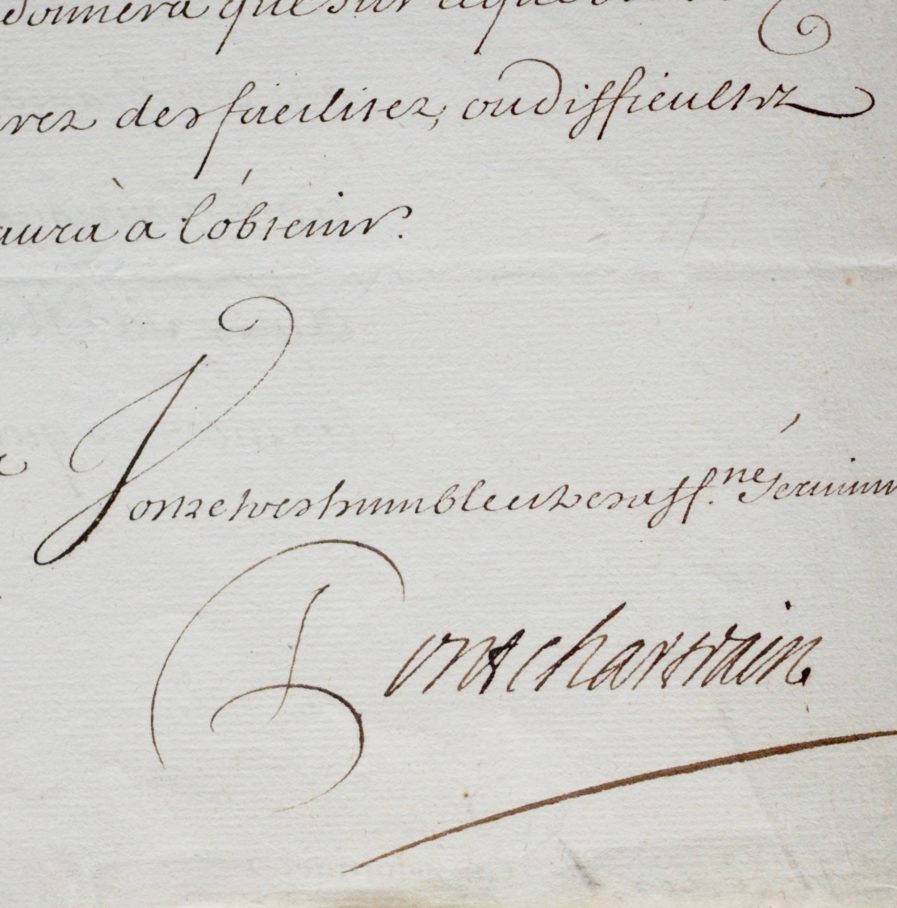 donnera que sur ce que
des facilitez, ou difficultez
aura à l'obtenir.
Vostre tres humble et tres aff.né Servi
Pontchartrain